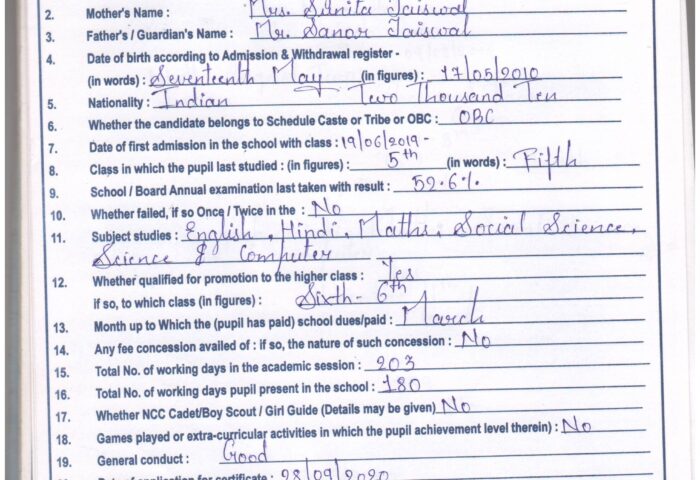 2. Mother's Name : Mrs. Sunita Jaiswal
3. Father's / Guardian's Name : Mr. Sanar Jaiswal
4. Date of birth according to Admission & Withdrawal register -
(in words) : Seventeenth May (in figures) : 17/05/2010
5. Nationality : Indian Two Thousand Ten
6. Whether the candidate belongs to Schedule Caste or Tribe or OBC : OBC
7. Date of first admission in the school with class : 19/06/2019 -
8. Class in which the pupil last studied : (in figures) : 5th (in words) : Fifth
9. School / Board Annual examination last taken with result : 52.6%
10. Whether failed, if so Once / Twice in the : No
11. Subject studies : English, Hindi, Maths, Social Science,
Science & Computer
12. Whether qualified for promotion to the higher class : Yes
if so, to which class (in figures) : Sixth - 6th
13. Month up to Which the (pupil has paid) school dues/paid : March
14. Any fee concession availed of : if so, the nature of such concession : No
15. Total No. of working days in the academic session : 203
16. Total No. of working days pupil present in the school : 180
17. Whether NCC Cadet/Boy Scout / Girl Guide (Details may be given) No
18. Games played or extra-curricular activities in which the pupil achievement level therein) : No
19. General conduct : Good
Date of application for certificate : 28/09/2020